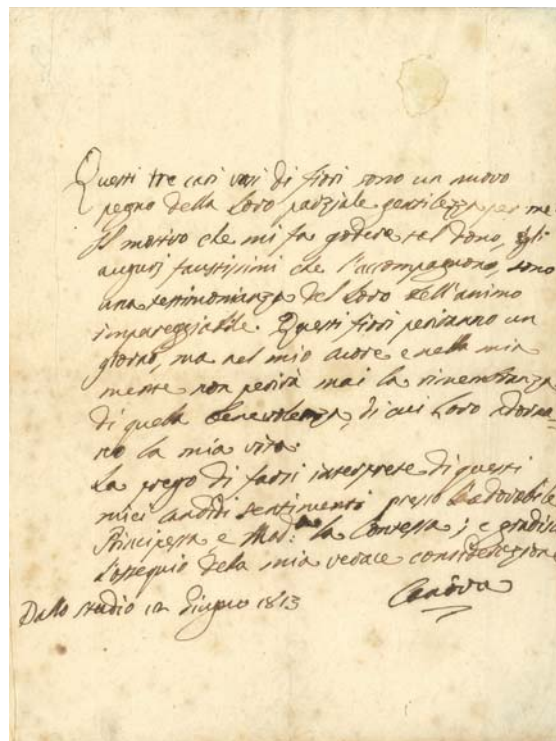 Questi tre cari vasi di fiori sono un nuovo
pegno della Loro parziale gentilezza per me
Il motivo che mi fa godere tal dono, gli
augurj faustissimi che l'accompagnono, sono
una testimonianza del Loro bell'animo
impareggiabile. Questi fiori periranno un
giorno, ma nel mio cuore e nella mia
mente non perirà mai la rimembranza
di quella benevolenza, di cui Loro adorna=
no la mia vita.
La prego di farsi interprete di questi
miei candidi sentimenti presso l'adorabile
Principessa e Mad.ma la Contessa; e gradisca
l'ossequio della mia verace considerazione
Canova
Dallo studio 12 Giugno 1813